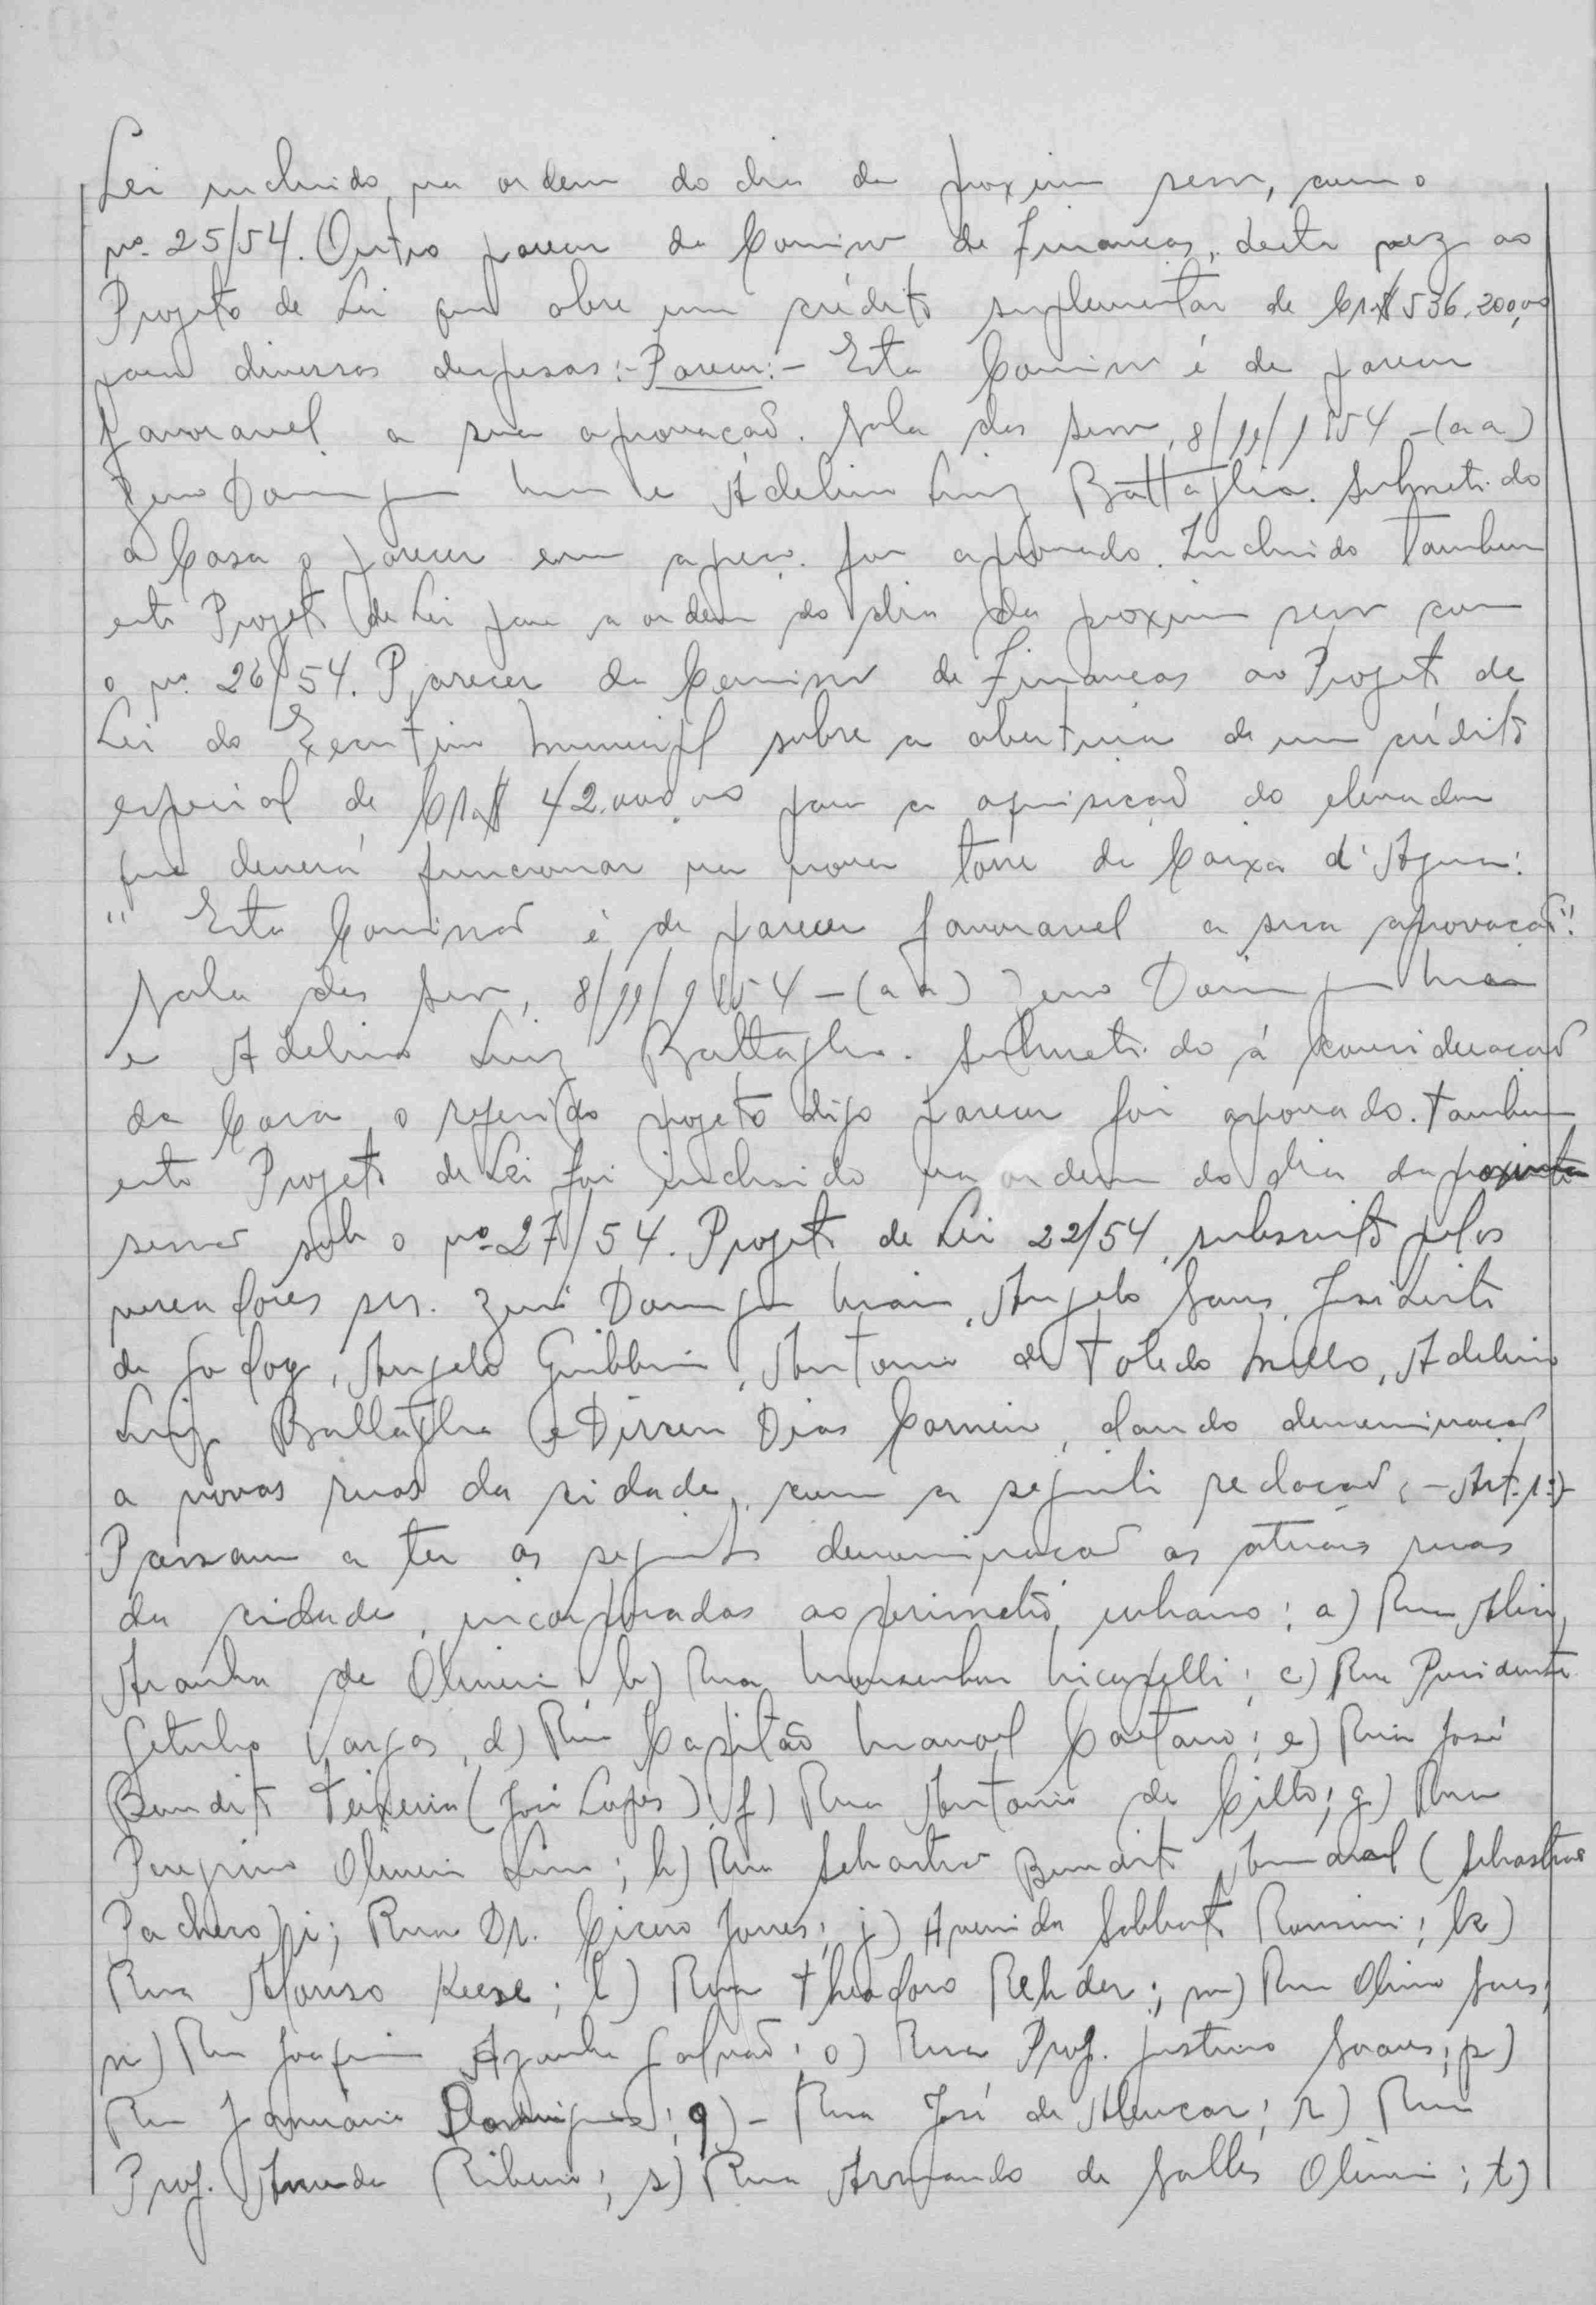 Lei incluido na ordem do dia da proxima sessão, com o
nº 25/54. Outro parecer da Comissão de Finanças, desta vez ao
Projeto de Lei que abre um crédito suplementar de Cr$ 536.200,00
para diversas despesas:- Parecer:- Esta Comissão é de parecer
favoravel a sua aprovação. Sala das Sessões, 8/11/1954 -(aa)
Zeno Domingues Maia e Adelino Luiz Battaglia. Submetido
a Casa o parecer em apreço foi aprovado. Incluido tambem
este Projeto de Lei para a ordem do dia da proxima sessão com
o nº 26/54. Parecer da Comissão de Finanças ao Projeto de
Lei do Executivo Municipal sobre a abertura de um crédito
especial de Cr$ 42.000,00 para a aquisição do elevador
que deverá funcionar na nova torre da Caixa d'Agua:
" Esta Comissão é de parecer favoravel a sua aprovação".
Sala das Sessões, 8/11/1954 -(aa) Zeno Domingues Maia
e Adelino Luiz Battaglia. Submetido á consideração
da Casa o referido projeto digo parecer foi aprovado. Tambem
este Projeto de Lei foi incluido na ordem do dia da proxima
sessão sob o nº 27/54. Projeto de Lei 22/54, subscrito pelos
vereadores srs. Zeno Domingues Maia, Angelo Sans, José Leite
de Godoy, Angelo Giubbini, Antonio de Toledo Mello, Adelino
Luiz Battaglia e Dirceu Dias Carneiro, dando denominação
a novas ruas da cidade, com a seguinte redação:- Art. 1º)-
Passam a ter as seguintes denominação as atuais ruas
da cidade, incorporadas ao perimetro urbano: a) Rua
Aranha de Oliveira; b) Rua Monsenhor Nicopelli; c) Rua Presidente
Getulio Vargas, d) Rua Capitão Manoel Caetano; e) Rua José
Benedito Teixeira (José Lopes); f) Rua Antonio de Cillo; g) Rua
Peregrino Oliveira Lino; h) Rua Sebastião Benedito Amaral (Sebastião
Pacheco) i; Rua Dr. Cicero Jones; j) Avenida Sabbato Ronsini; k)
Rua Afonso Keese; l) Rua Theodoro Rehder; m) Rua Olivio
n) Rua Joaquim Azanha Galvão; o) Rua Prof. Justino Soares; p)
Rua Januário Domingues; q)- Rua José de Alencar; r) Rua
Prof. Arruda Ribeiro; s) Rua Armando de Salles Oliveira; t)